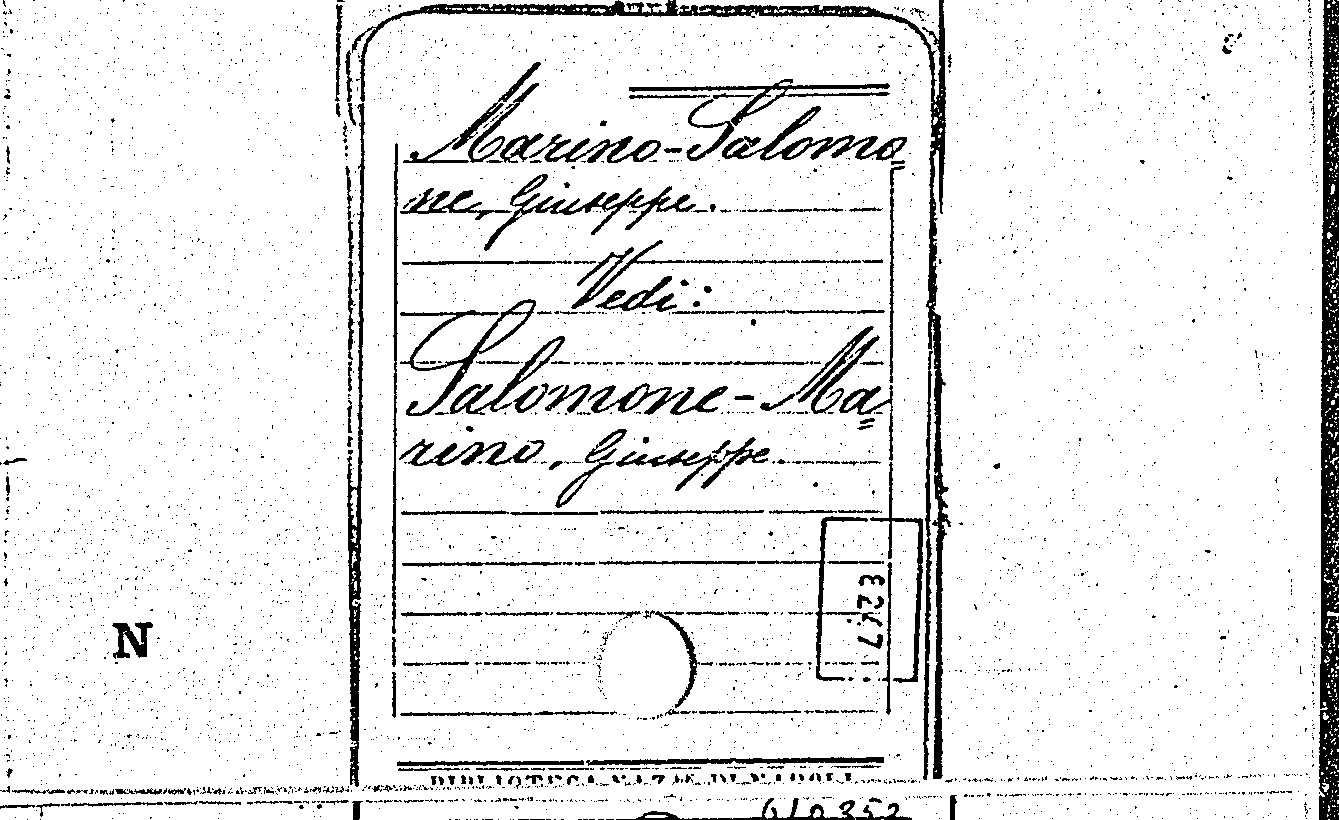 Marino-Salomo=
ne, Giuseppe.
Vedi:
Salomone-Ma=
rino, Giuseppe.
3247
N
BIBLIOTECA NAZ.LE DI NAPOLI
610352